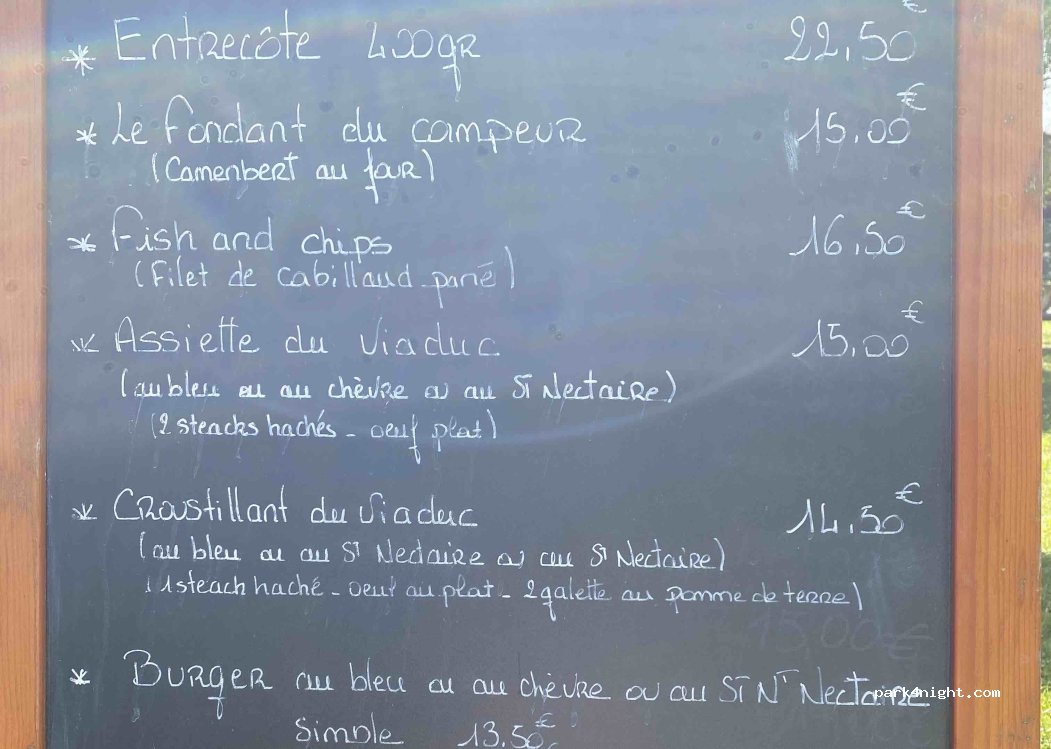 * Entrecôte 400gr 22,50 €
* Le fondant du campeur 15,00 €
(Camenbert au four)
* Fish and chips 16,50 €
(Filet de cabillaud pané)
* Assiette du Viaduc 15,00 €
(au bleu ou au chèvre ou au St Nectaire)
(2 steacks hachés - oeuf plat)
* Croustillant du Viaduc 14,50 €
(au bleu ou au St Nectaire ou au St Nectaire)
(1 steack haché - oeuf au plat - 2 galette au pomme de terre)
15,00 €
* Burger au bleu ou au chèvre ou au St Nt Nectaire
park4night.com
Simple 13,50€